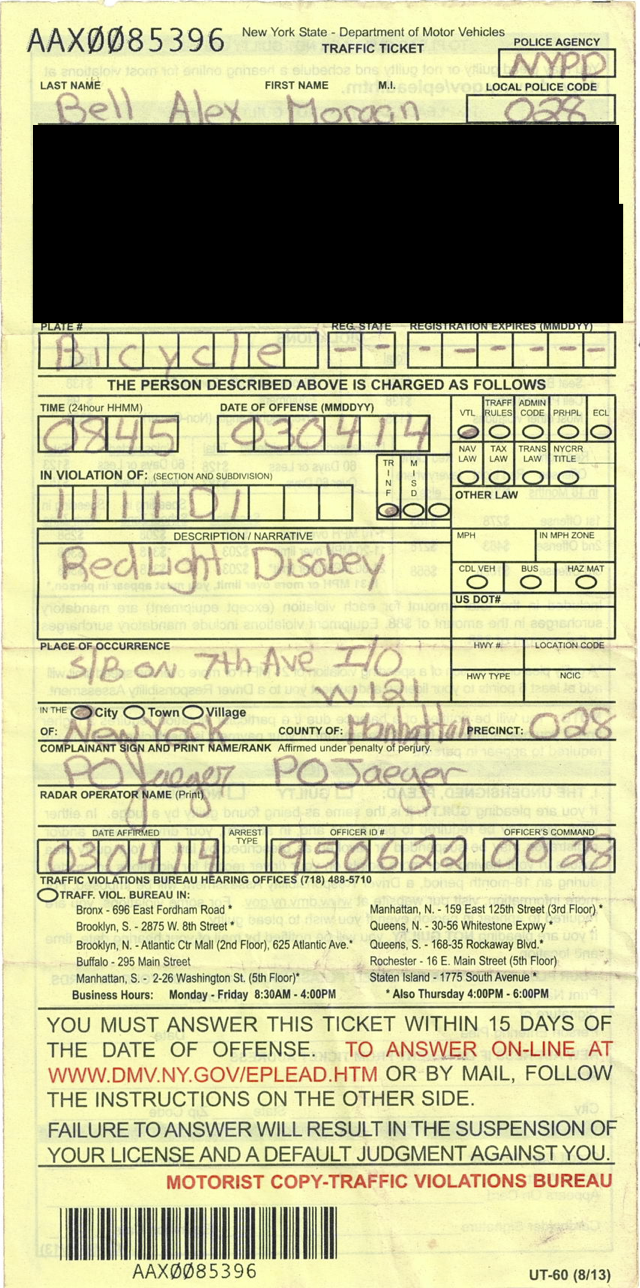 AAXØØ85396
New York State - Department of Motor Vehicles
TRAFFIC TICKET
POLICE AGENCY
NYPD
LAST NAME FIRST NAME M.I.
LOCAL POLICE CODE
Bell Alex Morgan
028
PLATE # REG. STATE REGISTRATION EXPIRES (MMDDYY)
Bicycle - - - - - - - -
THE PERSON DESCRIBED ABOVE IS CHARGED AS FOLLOWS
TIME (24hour HHMM) DATE OF OFFENSE (MMDDYY)
0845 030414
VTL TRAFF RULES ADMIN CODE PRHPL ECL
NAV LAW TAX LAW TRANS LAW NYCRR TITLE
IN VIOLATION OF: (SECTION AND SUBDIVISION)
TRINF MISD
OTHER LAW
1111D1
DESCRIPTION / NARRATIVE
MPH IN MPH ZONE
Red Light Disobey
CDL VEH BUS HAZ MAT
US DOT#
PLACE OF OCCURRENCE
HWY # LOCATION CODE
S/B ON 7th Ave I/O
W 121
HWY TYPE NCIC
IN THE City Town Village
OF: New York COUNTY OF: Manhattan PRECINCT: 028
COMPLAINANT SIGN AND PRINT NAME/RANK Affirmed under penalty of perjury.
PO Jaeger PO Jaeger
RADAR OPERATOR NAME (Print)
DATE AFFIRMED ARREST TYPE OFFICER ID # OFFICER'S COMMAND
030414 950622 0028
TRAFFIC VIOLATIONS BUREAU HEARING OFFICES (718) 488-5710
TRAFF. VIOL. BUREAU IN:
Bronx - 696 East Fordham Road *
Brooklyn, S. - 2875 W. 8th Street *
Brooklyn, N. - Atlantic Ctr Mall (2nd Floor), 625 Atlantic Ave.*
Buffalo - 295 Main Street
Manhattan, S. - 2-26 Washington St. (5th Floor)*
Manhattan, N. - 159 East 125th Street (3rd Floor) *
Queens, N. - 30-56 Whitestone Expwy *
Queens, S. - 168-35 Rockaway Blvd.*
Rochester - 16 E. Main Street (5th Floor)
Staten Island - 1775 South Avenue *
Business Hours: Monday - Friday 8:30AM - 4:00PM
* Also Thursday 4:00PM - 6:00PM
YOU MUST ANSWER THIS TICKET WITHIN 15 DAYS OF
THE DATE OF OFFENSE. TO ANSWER ON-LINE AT
WWW.DMV.NY.GOV/EPLEAD.HTM OR BY MAIL, FOLLOW
THE INSTRUCTIONS ON THE OTHER SIDE.
FAILURE TO ANSWER WILL RESULT IN THE SUSPENSION OF
YOUR LICENSE AND A DEFAULT JUDGMENT AGAINST YOU.
MOTORIST COPY-TRAFFIC VIOLATIONS BUREAU
AAXØØ85396
UT-60 (8/13)